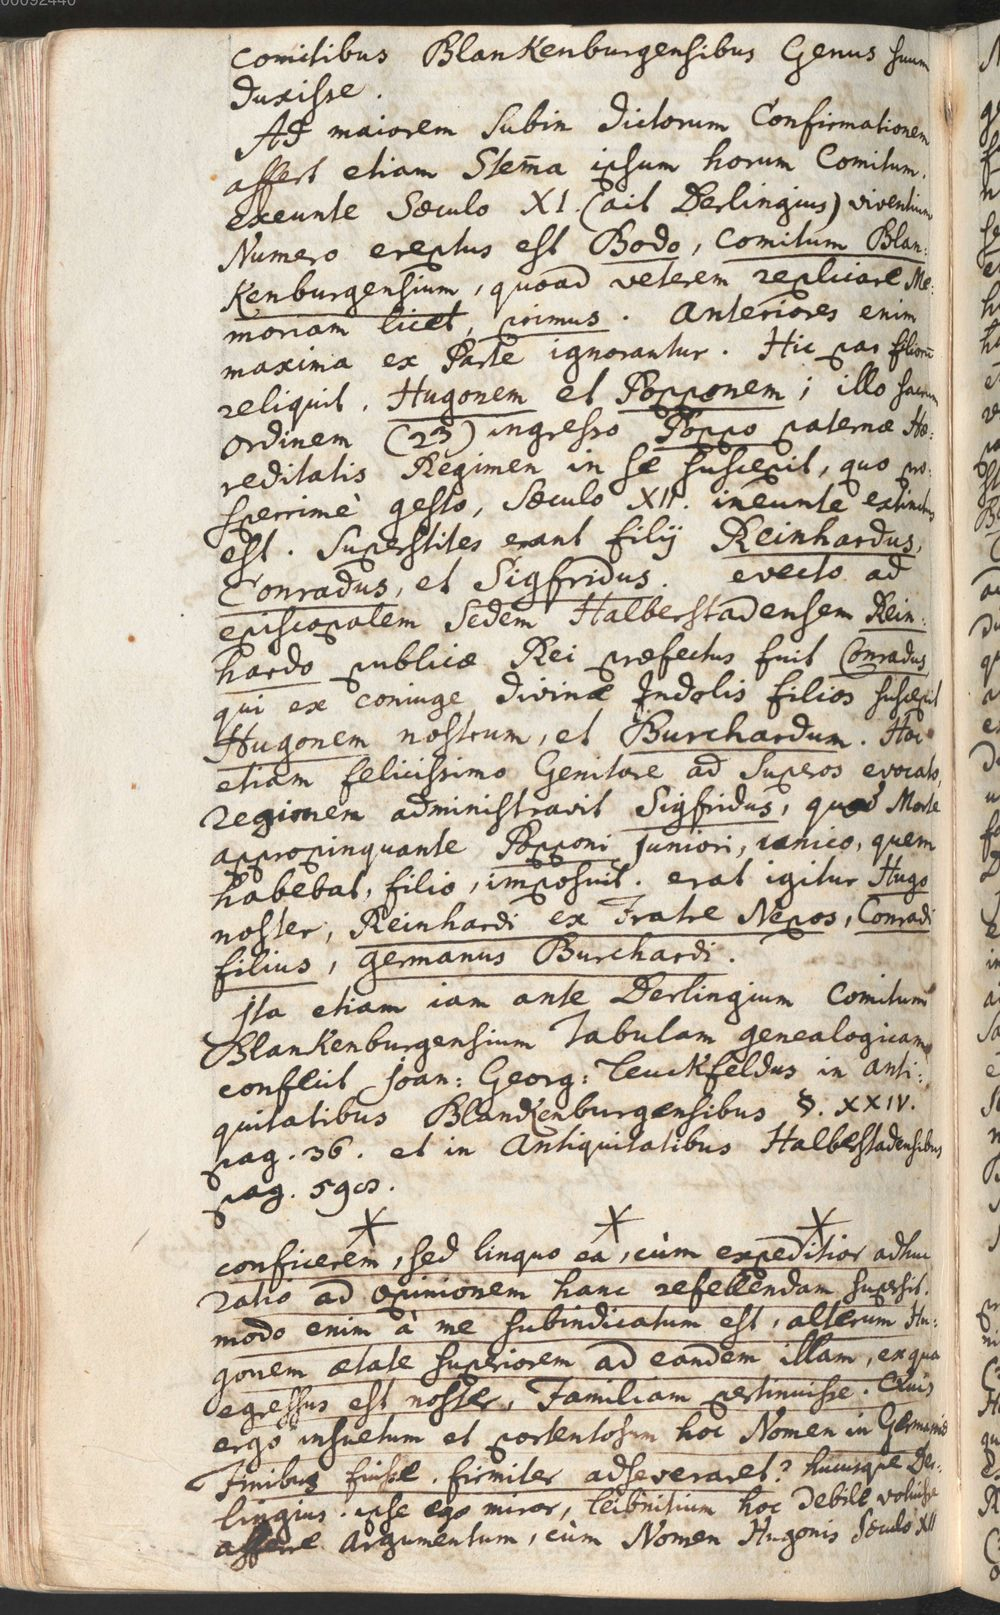 00092440
comitibus Blankenburgensibus Genus suum
duxisse.
Ad maiorem subin dictorum Confirmationem
affert etiam Stem̄a ipsum horum Comitum.
exeunte Sæculo XI. (ait Derlingius) viventium
Numero ereptus est Bodo, Comitum Blan:
Kenburgensium, quoad veterem replicare Me:
moriam licet, primus. Anteriores enim
maxima ex Parte ignorantur. Hic par filiorū
reliquit, Hugonem et Popponem; illo sacrum
ordinem (23) ingresso Poppo paternæ Hæ:
reditatis Regimen in se suscepit, quo pro:
sperrimè gesto, Sæculo XII. ineunte extinctus
est. Superstites erant filij Reinhardus,
Conradus, et Sigfridus. evecto ad
episcopalem Sedem Halberstadensem Rein:
hardo publicæ Rei præfectus fuit Conradus,
qui ex coniuge divinæ Indolis filios suscepit
Hugonem nostrum, et Burchardum. Hoc
etiam felicissimo Genitore ad Superos evocato,
regionem administravit Sigfridus, quod Morte
appropinquante Popponi juniori, unico, quem
habebat, filio, imposuit. erat igitur Hugo
noster, Reinhardi ex Fratre Nepos, Conradi
filius, germanus Burchardi.
Ita etiam iam ante Derlingium Comitum
Blankenburgensium Tabulam genealogicam
confecit Joan: Georg: Leuckfeldus in Anti:
quitatibus Blanckenburgensibus §. XXIV.
pag. 36. et in Antiquitatibus Halberstadensibus
pag.
conficerem, sed linquo ea, cùm expeditior adhuc
ratio ad opinionem hanc refellendam supersit.
modo enim à me subindicatum est, alterum Hu:
gonem ætate superiorem ad eandem illam, ex qua
egressus est noster, Familiam pertinuisse. Quis
ergo insuetum et portentosum hoc Nomen in Germaniæ
Finibus fuisse firmiter adseveraret? hucusque Der:
lingius. ipse ego miror, Leibnitium hoc debile voluisse
afferre Argumentum, cùm Nomen Hugonis Sæculo XII